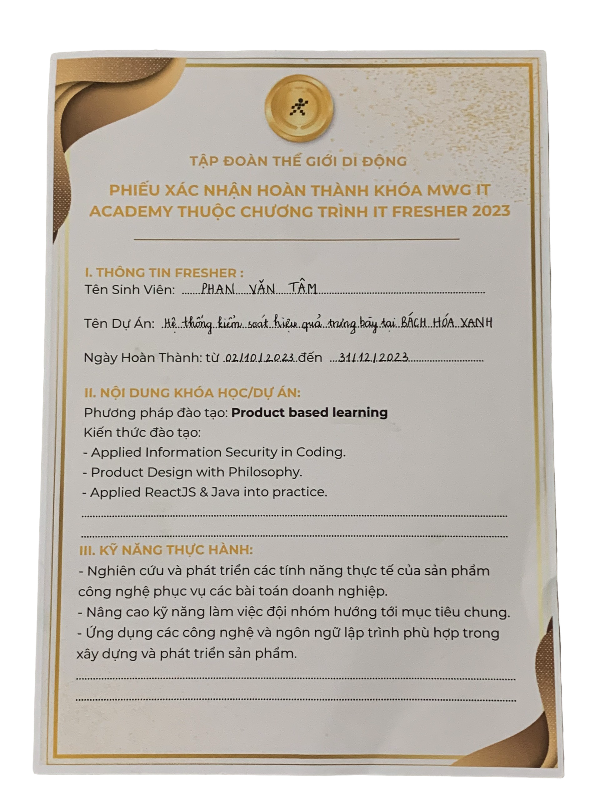 TẬP ĐOÀN THẾ GIỚI DI ĐỘNG
PHIẾU XÁC NHẬN HOÀN THÀNH KHÓA MWG IT
ACADEMY THUỘC CHƯƠNG TRÌNH IT FRESHER 2023
I. THÔNG TIN FRESHER :
Tên Sinh Viên: PHAN VĂN TÂM
Tên Dự Án: Hệ thống kiểm soát hiệu quả trưng bày tại BÁCH HÓA XANH
Ngày Hoàn Thành: từ 02/10/2023 đến 31/12/2023
II. NỘI DUNG KHÓA HỌC/DỰ ÁN:
Phương pháp đào tạo: Product based learning
Kiến thức đào tạo:
- Applied Information Security in Coding.
- Product Design with Philosophy.
- Applied ReactJS & Java into practice.
III. KỸ NĂNG THỰC HÀNH:
- Nghiên cứu và phát triển các tính năng thực tế của sản phẩm
công nghệ phục vụ các bài toán doanh nghiệp.
- Nâng cao kỹ năng làm việc đội nhóm hướng tới mục tiêu chung.
- Ứng dụng các công nghệ và ngôn ngữ lập trình phù hợp trong
xây dựng và phát triển sản phẩm.